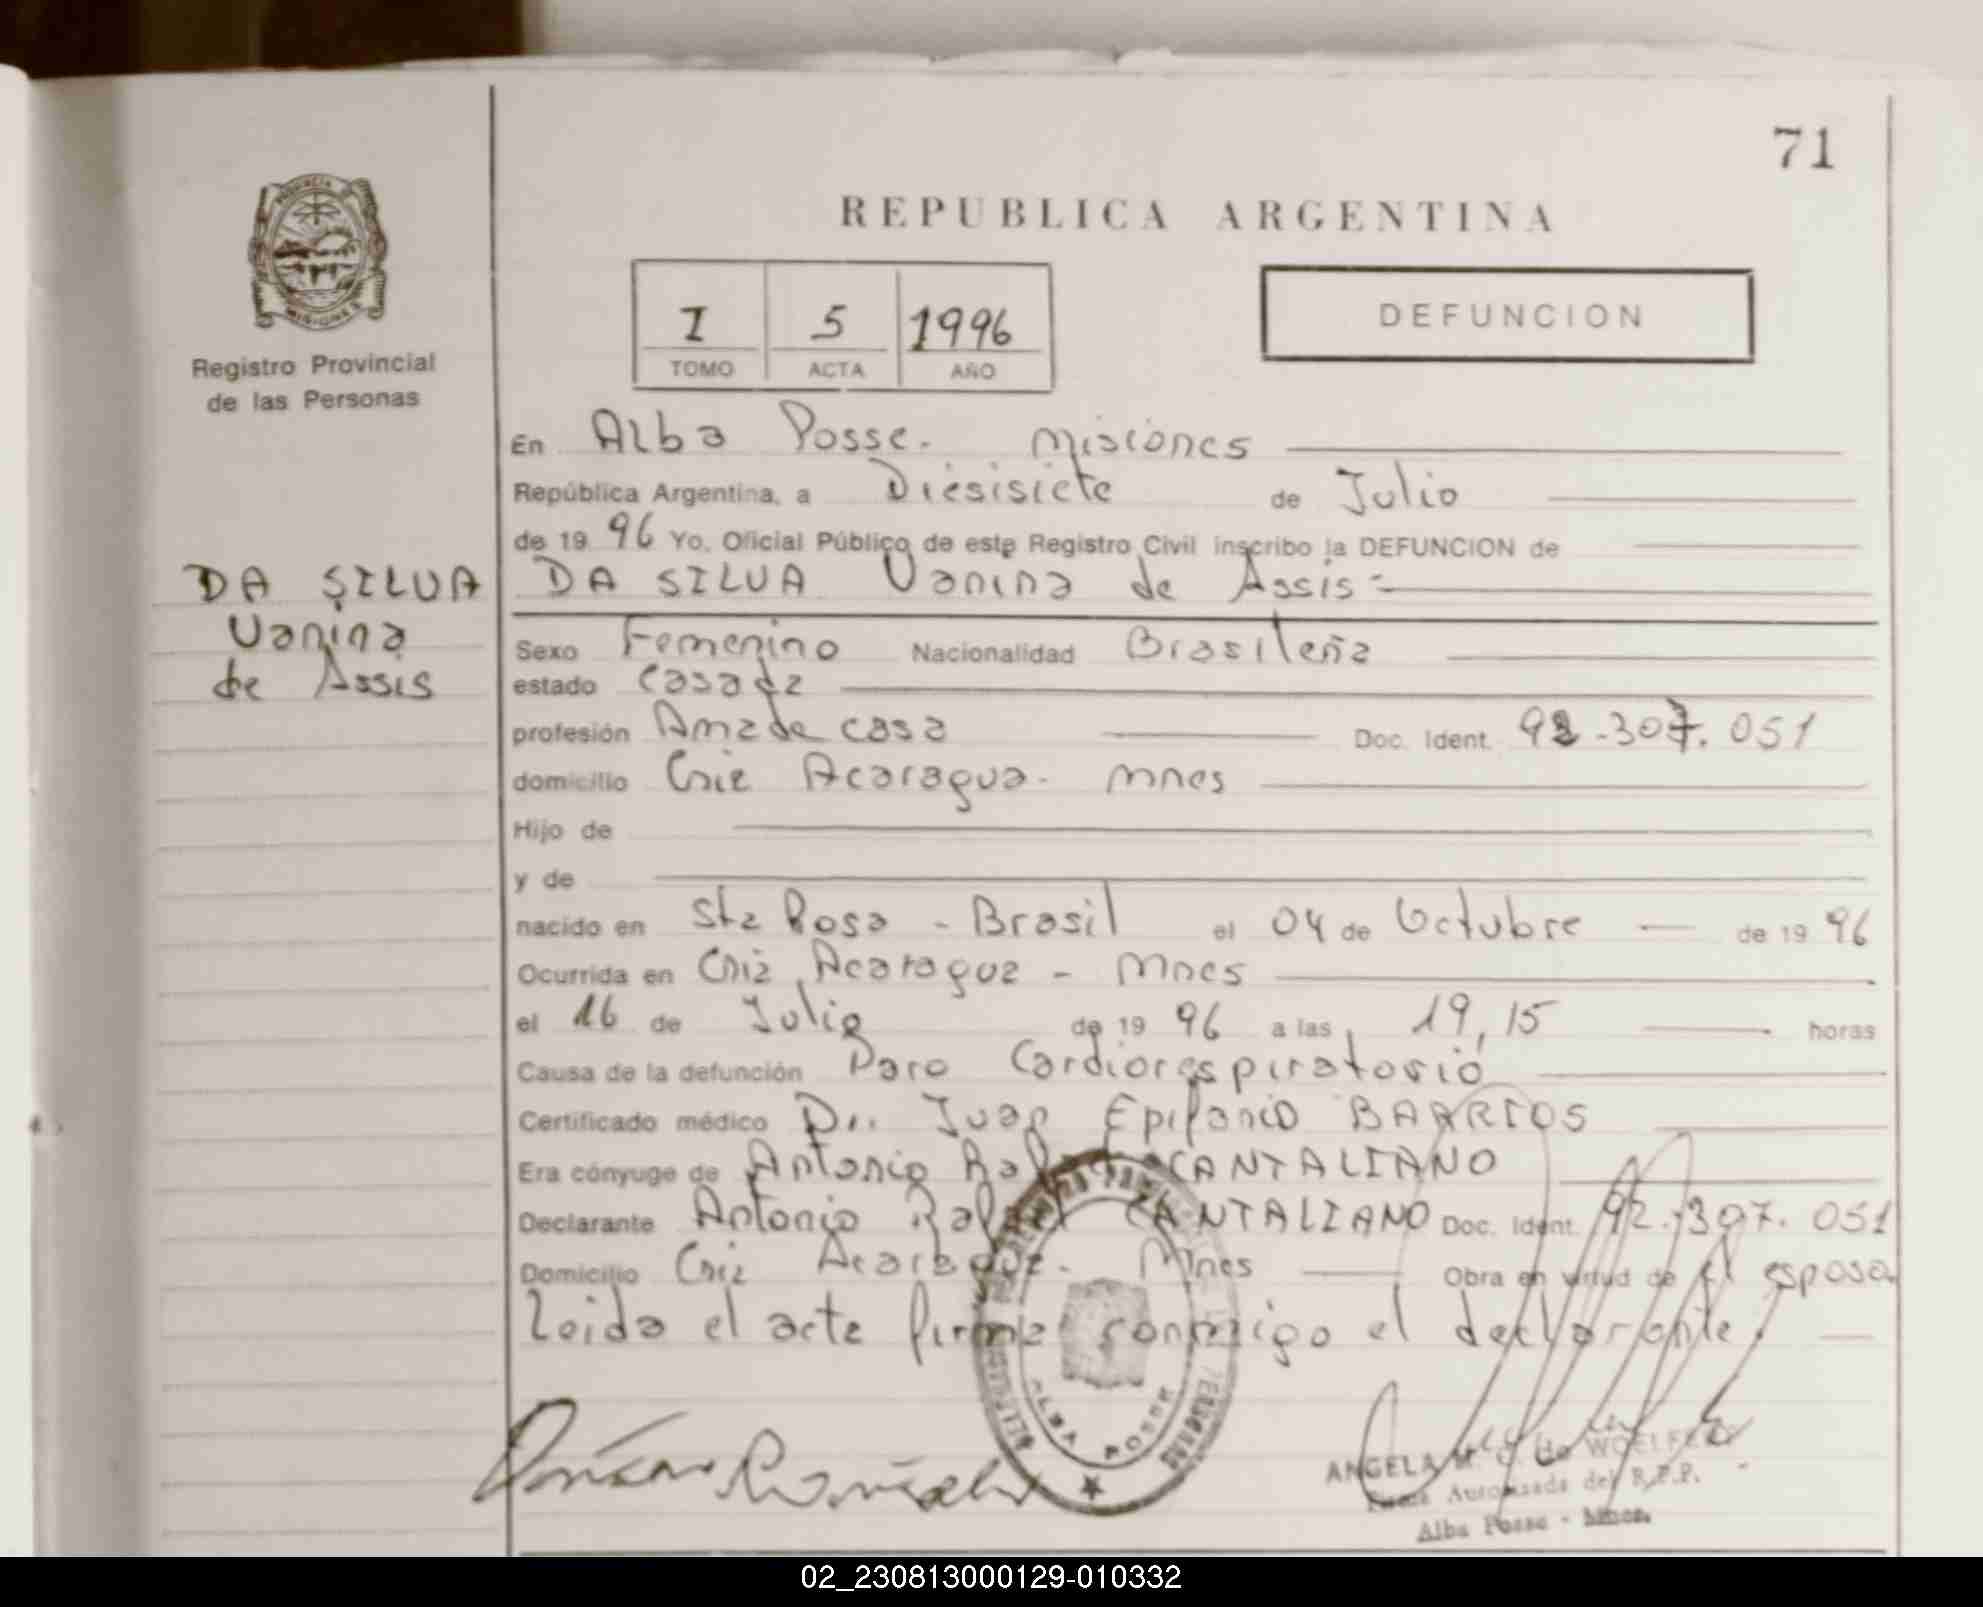 71
REPUBLICA ARGENTINA
I 5 1996
TOMO ACTA AÑO
DEFUNCION
Registro Provincial
de las Personas
DA SILVA
Vanina
de Assis
En Alba Posse. Misiones
República Argentina, a Diesisiete de Julio
de 19 96 Yo, Oficial Público de este Registro Civil inscribo la DEFUNCION de
DA SILVA Vanina de Assis
Sexo Femenino Nacionalidad Brasileña
estado Casada
profesión Ama de casa Doc. Ident. 92.307.051
domicilio Cnia Acaragua. Mnes
Hijo de
y de
nacido en Sta Rosa - Brasil el 04 de Octubre de 19 96
Ocurrida en Cnia Acaragua - Mnes
el 16 de Julio de 19 96 a las 19,15 horas
Causa de la defunción Paro Cardiorespiratorio
Certificado médico Dr. Juan Epifanio BARRIOS
Era cónyuge de Antonio CANTALIANO
Declarante Antonio CANTALIANO Doc. Ident. 92.307.051
Domicilio Cnia Acaragua. Mnes Obra en virtud de el esposo
Leida el acta firma conmigo el declarante.
ALBA POSSE
ANGELA M. de
Firma Autorizada del R.P.P.
Alba Posse - Mnes.
02_230813000129-010332